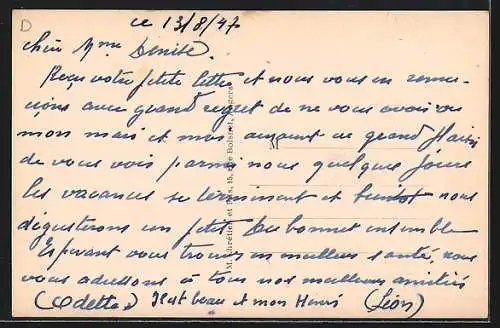 D
ce 13/8/47
Chère Mme Denise.
Reçu votre petite lettre et nous vous en remer-
cions avec grand regret de ne vous avoir vu
mon mari et moi auraient eu grand plaisir
de vous voir parmi nous quelques jours
les vacances se terminent et bientôt nous
dégusterons un petit Dubonnet ensemble
Espérant vous trouver en meilleure santé, nous
vous adressons à tous nos meilleures amitiés
(Odette) et mon (Léon)
M
15, rue Boisnet, Angers